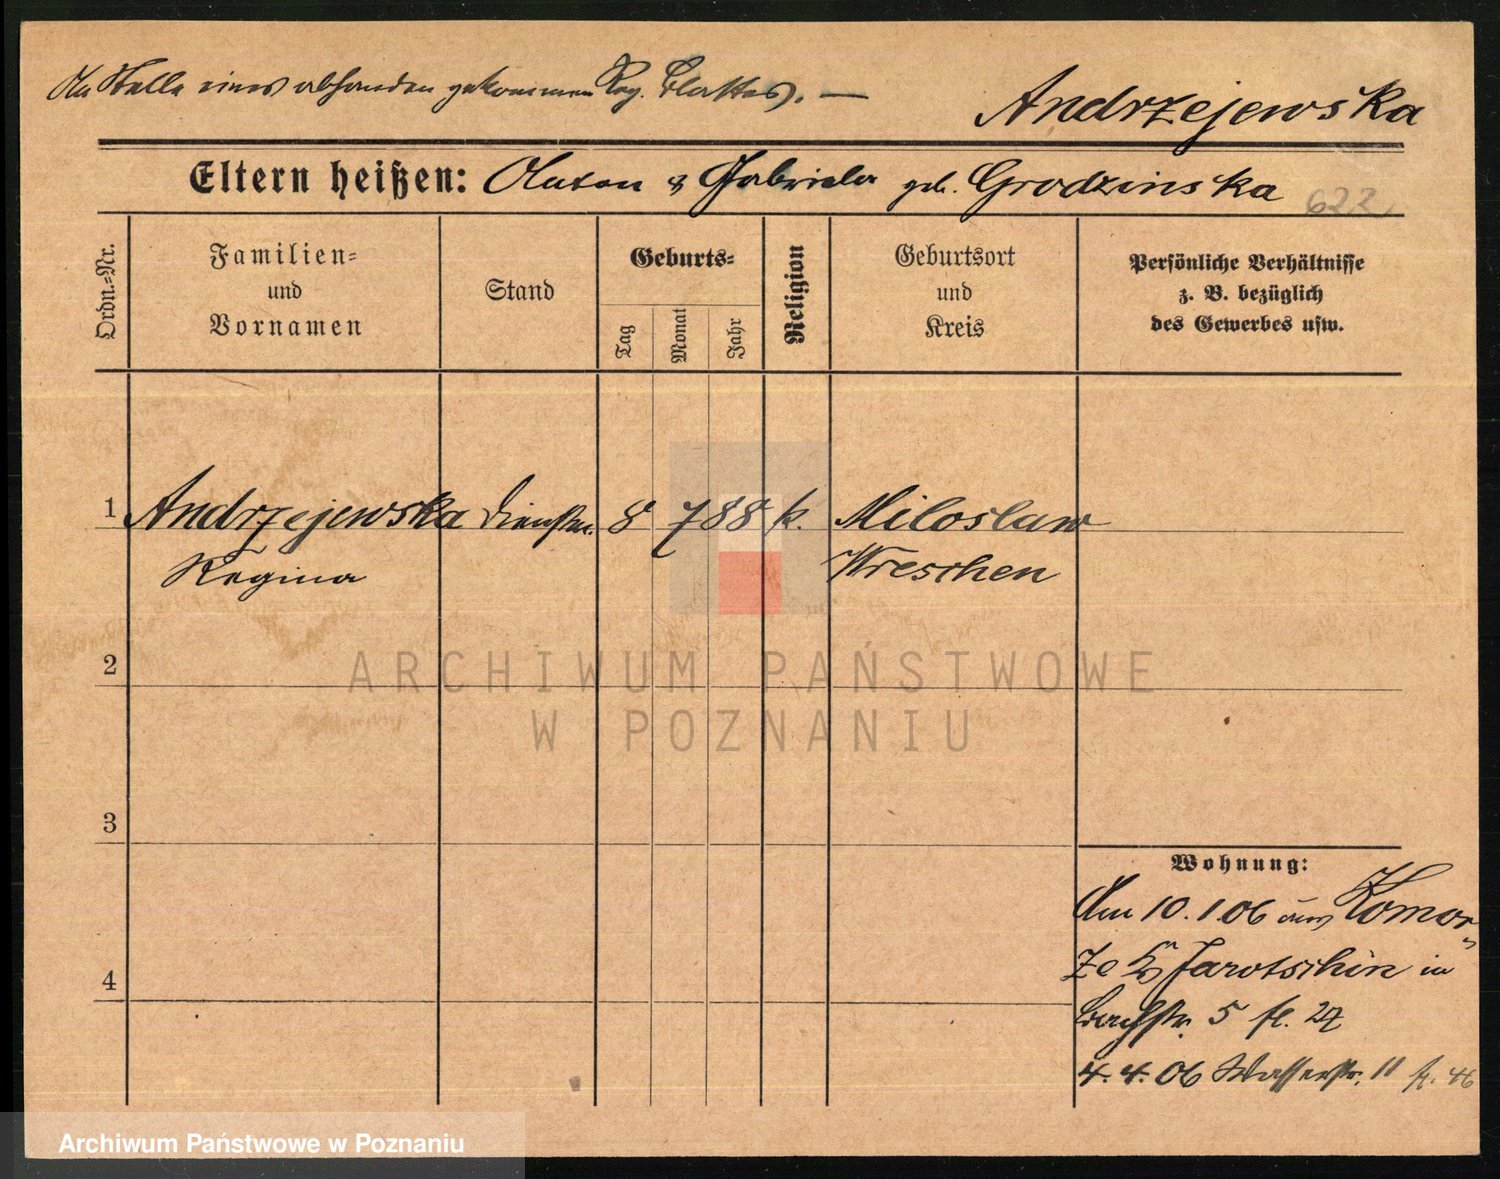 An Stelle eines abhanden gekommenen Reg. Blattes. —
Andrzejewska
Eltern heißen: Anton & Gabriela geb. Grodzinska 622
Ordn.=Nr.
Familien=
und
Vornamen
Stand
Geburts=
Tag
Monat
Jahr
Religion
Geburtsort
und
Kreis
Persönliche Verhältnisse
z. B. bezüglich
des Gewerbes usw.
1 Andrzejewska Dienstm. 8 7 88 k. Miloslaw
Regina Wreschen
2
3
4
Wohnung:
Am 10.1.06 aus Komor=
ze Jarotschin in
5 27
4.4.06 Wasserstr. 11 46
ARCHIWUM PAŃSTWOWE
W POZNANIU
Archiwum Państwowe w Poznaniu